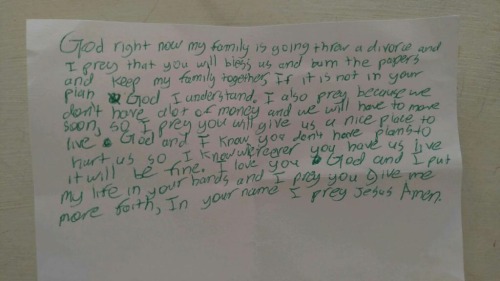 God right now my family is going threw a divorce and
I prey that you will bless us and burn the papers
and keep my family together, If it is not in your
plan God I understand. I also prey because we
don't have alot of money and we will have to move
soon, so I prey you will give us a nice place to
live God and I know you don't have plans to
hurt us so I know werever you have us live
it will be fine. I love you God and I put
my life in your hands and I prey you give me
more faith, In your name I prey Jesus Amen.